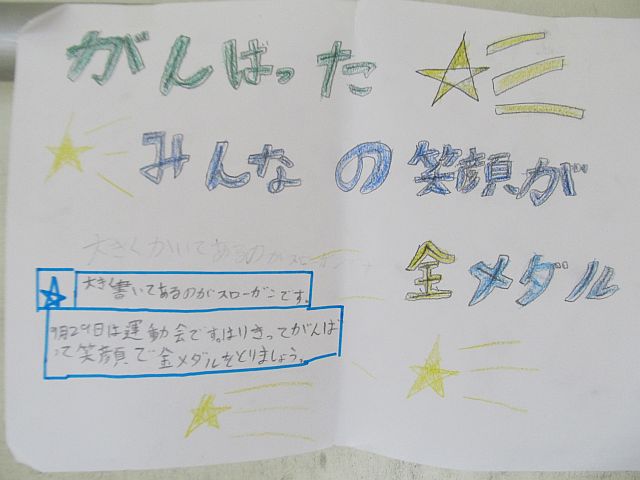 がんばった
みんなの笑顔が
金メダル
大きくかいてあるのがスローガン
大きく書いてあるのがスローガンです。
9月29日は運動会です。はりきってがんば
って笑顔で金メダルをとりましょう。